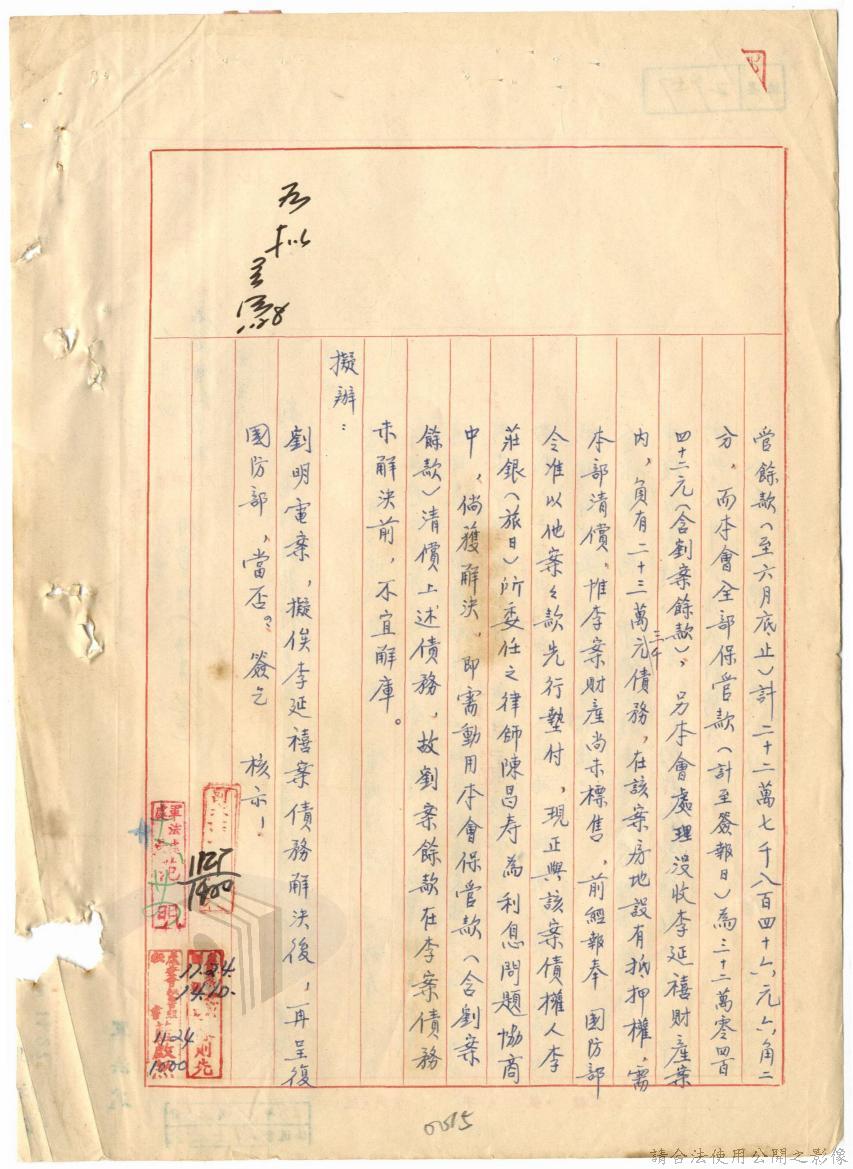 管餘款(至六月底止)計二十二萬七千八百四十六元六角二
分,而本會全部保管款(計至簽報日)為三十二萬零四百
四十二元(含劉案餘款),另本會處理沒收李延禧財產案
內,負有二十三萬三千元債務,在該案房地設有抵押權,需
本部清償,惟李案財產尚未標售,前經報奉 國防部
令准以他案々款先行墊付,現正與該案債權人李
莊銀(旅日)所委任之律師陳昌寿為利息問題協商
中,倘獲解決,即需動用本會保管款(含劉案
餘款)清償上述債務,故劉案餘款在李案債務
未解決前,不宜解庫。
擬辦:
劉明電案,擬俟李延禧案債務解決後,再呈復
國防部,當否?簽乞 核示!
如擬
1128
1125
1400
軍法處
范明
11.24.
14.10.
則先
1124
1000
0015
請合法使用公開之影像